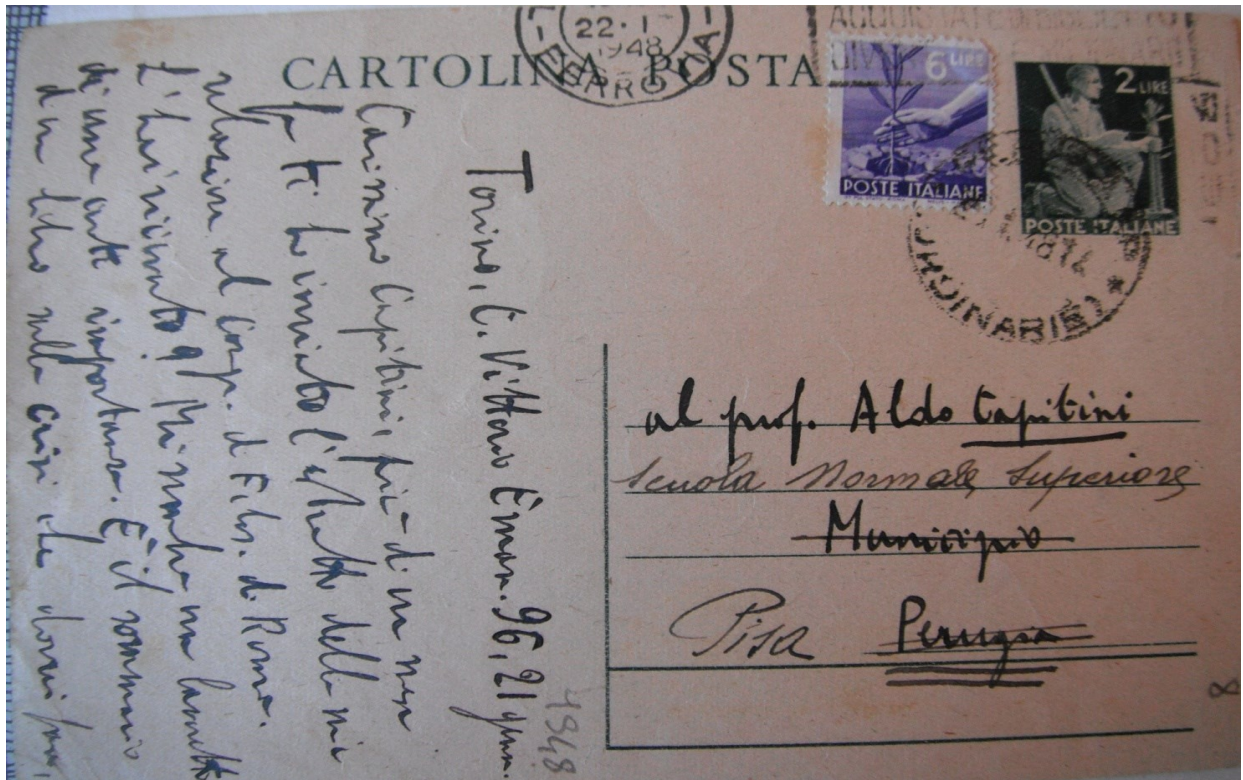 22·1
1948
FERROVIA
CARTOLINA POSTA
6 LIRE
POSTE ITALIANE
2 LIRE
POSTE ITALIANE
al prof. Aldo Capitini
Scuola Normale Superiore
Municipio
Pisa Perugia
8
1948
Torino, C. Vittorio Eman. 96, 21 genn.
Carissimo Capitini, più di un mese
fa ti ho inviato l'estratto della mia
relazione al Congr. di Filos. di Roma.
L'hai ricevuto? Mi sembra un lavoretto
di una certa importanza. È il sommario
d'un libro sulla crisi che dovrei fare,